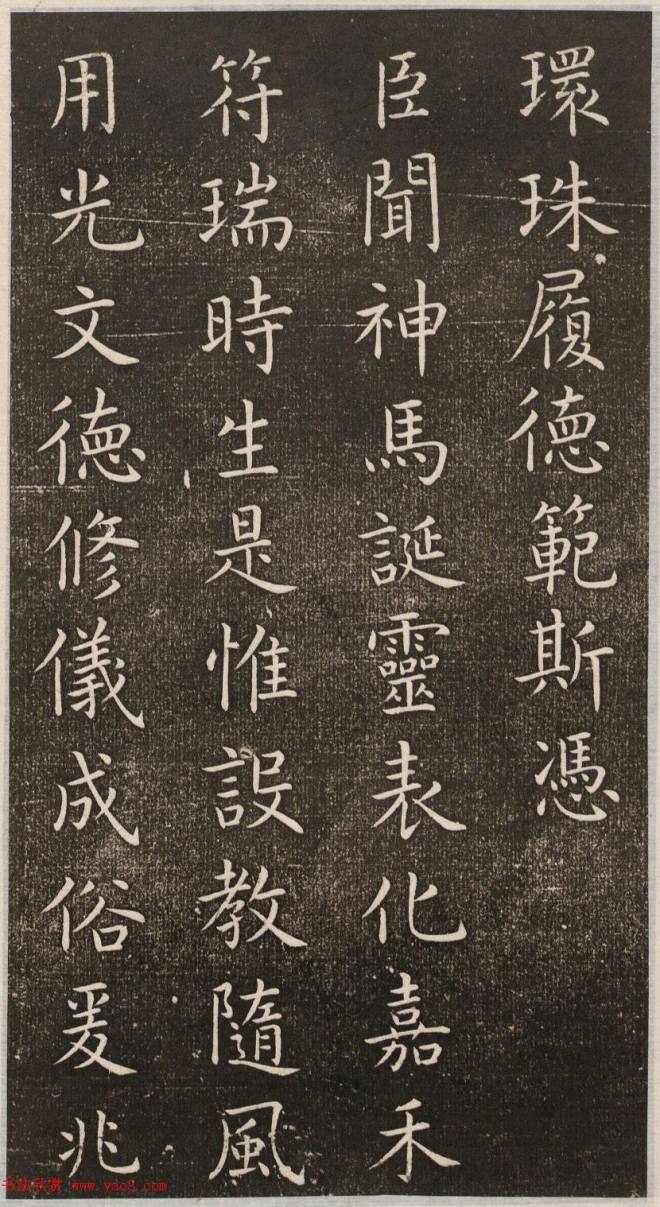 環珠履德範斯憑
臣聞神馬誕靈表化嘉禾
符瑞時生是惟設教隨風
用光文德修儀成俗爰兆
书法欣赏 www.yac8.com